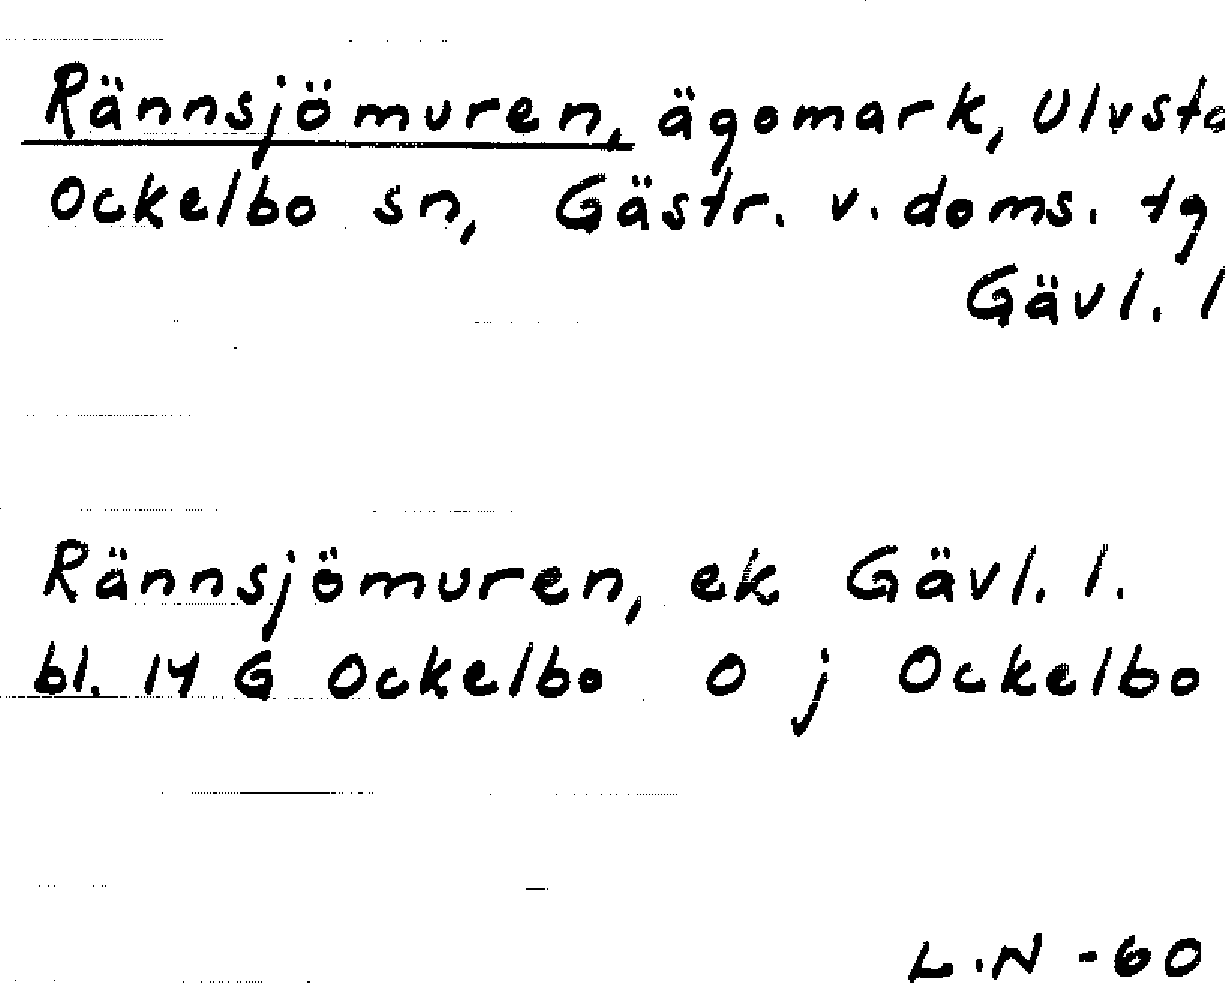 Rännsjömuren, ägomark, Ulvsta
Ockelbo sn, Gästr. v. doms. tg
Gävl. l
Rännsjömuren, ek Gävl. l.
bl. 14 G Ockelbo O j Ockelbo
L.N -60